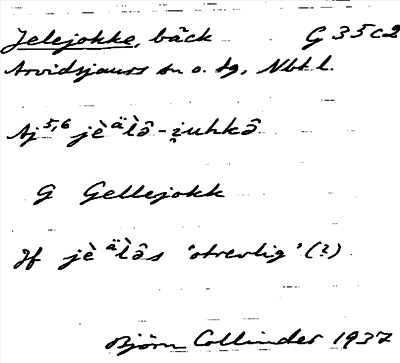 Jelejokke, bäck G 35 c 2
Arvidsjaurs sn o. tg, Nbt l.
Aj 5,6 jèäl̀ô-i̯uhkô
G Gellejokk
Jf jèäl̀ôs 'otrevlig' (?)
Björn Collinder 1937